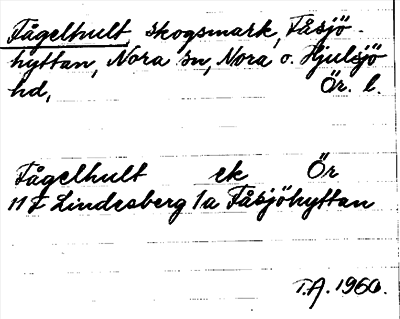 Fågelhult, skogsmark, Fåsjö-
hyttan, Nora sn, Nora o. Hjulsjö
hd, Ör. l.
Fågelhult ek Ör
11 F Lindesberg 1a Fåsjöhyttan
T.A. 1960.